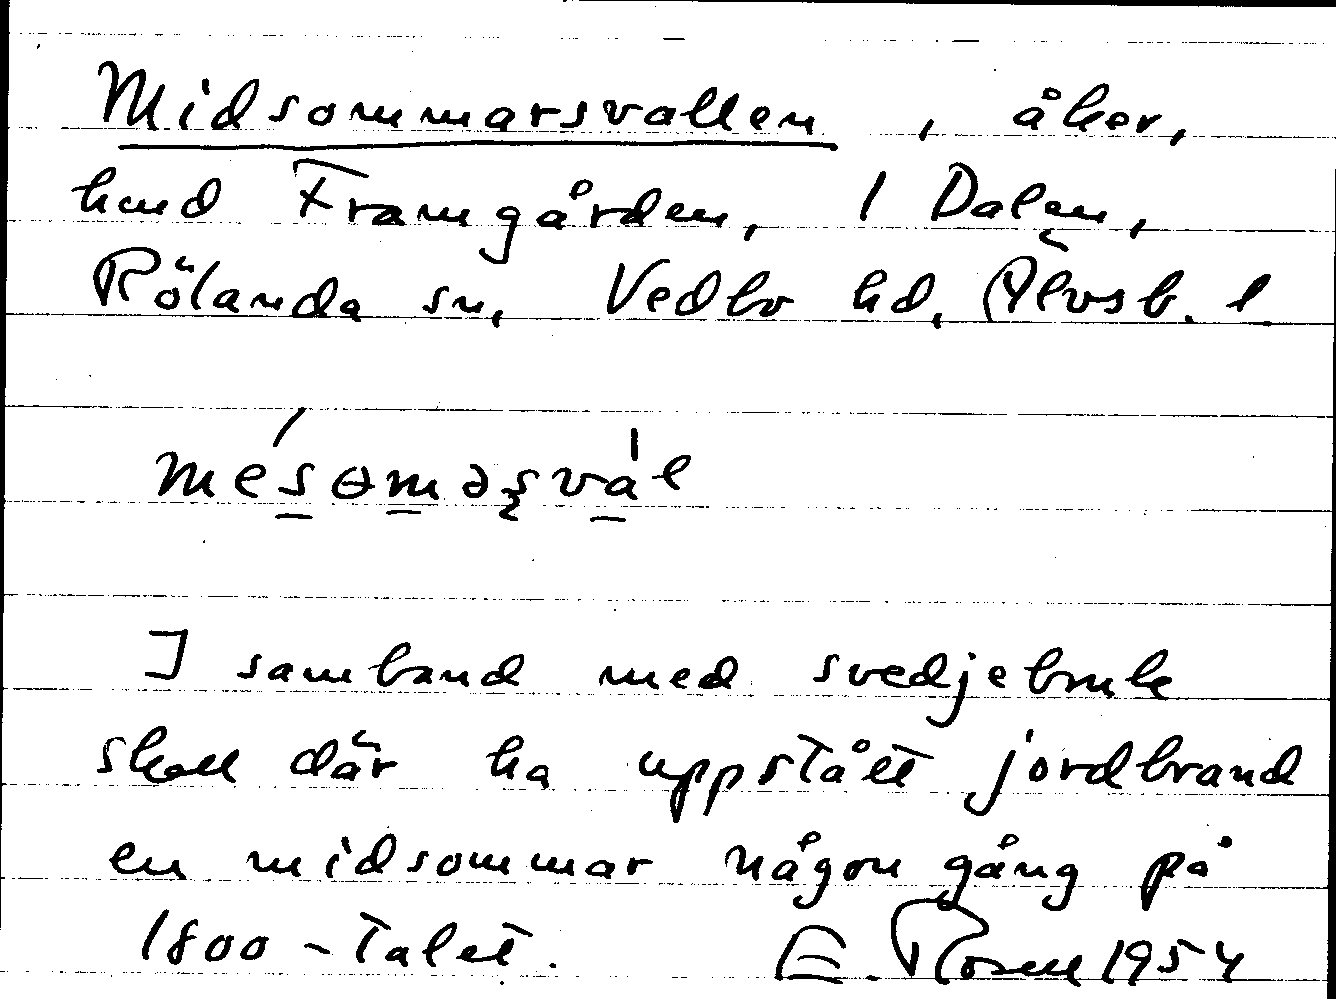 Midsommarsvallen, åker,
hmd Framgården, 1 Dalen,
Rölanda sn, Vedbo hd, Älvsb. l
mésɵməʂvál
I samband med svedjebruk
skall där ha uppstått jordbrand
en midsommar någon gång på
1800-talet. E. Rosell 1954